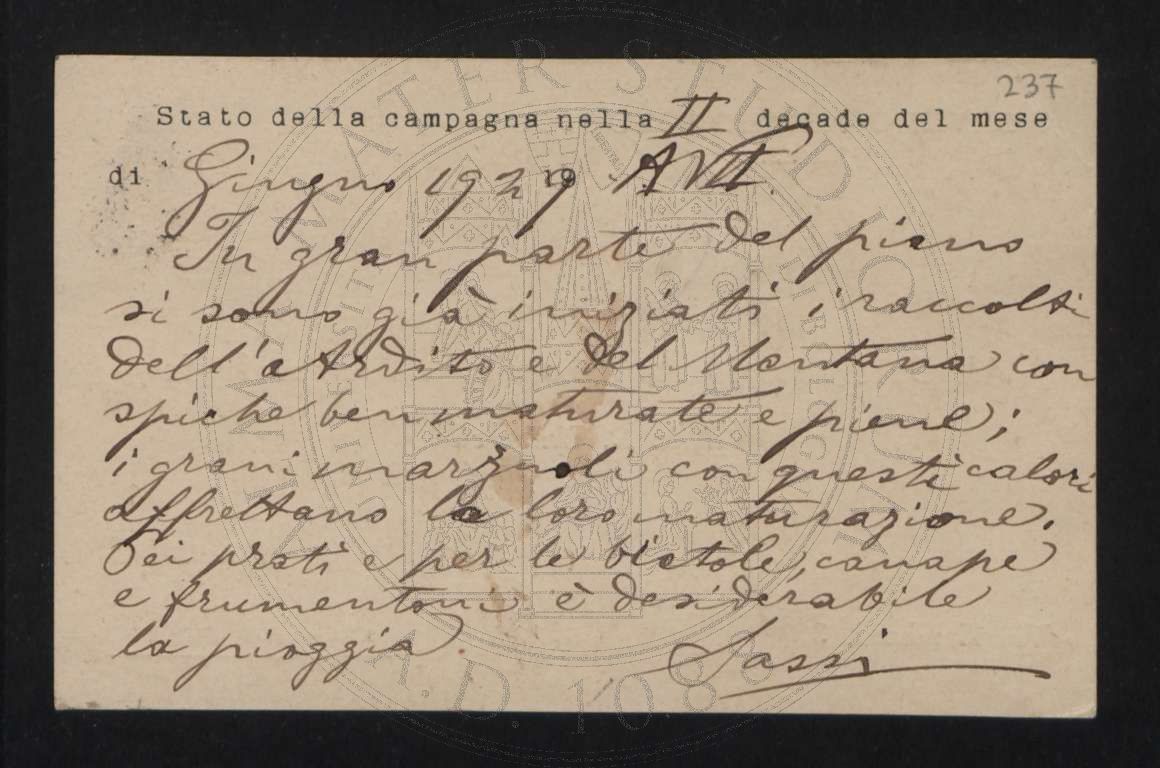 237
Stato della campagna nella II decade del mese
di Giugno 1929 19 A VII.
In gran parte del piano
si sono già iniziati i raccolti
dell'Ardito e del Mentana con
spiche ben maturate e piene;
i grani marzuoli con questi calori
affrettano la loro maturazione.
Pei prati e per le bietole, canape
e frumentoni è desiderabile
la pioggia.
Sassi
ALMA MATER STUDIORUM
A.D. 1088